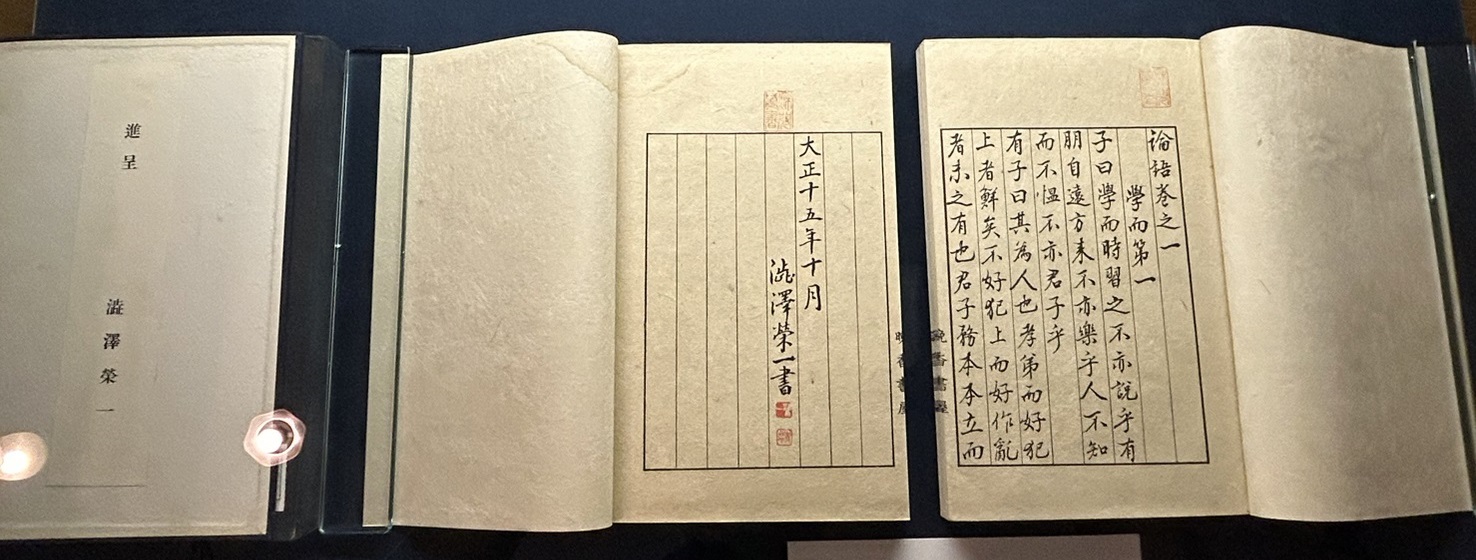 論語巻之一
學而第一
子曰學而時習之不亦說乎有
朋自遠方来不亦樂乎人不知
而不愠不亦君子乎
有子曰其為人也孝弟而好犯
上者鮮矣不好犯上而好作亂
者未之有也君子務本本立而
晩香書屋
晩香書屋
大正十五年十月
澁澤榮一書
進呈
澁澤榮一